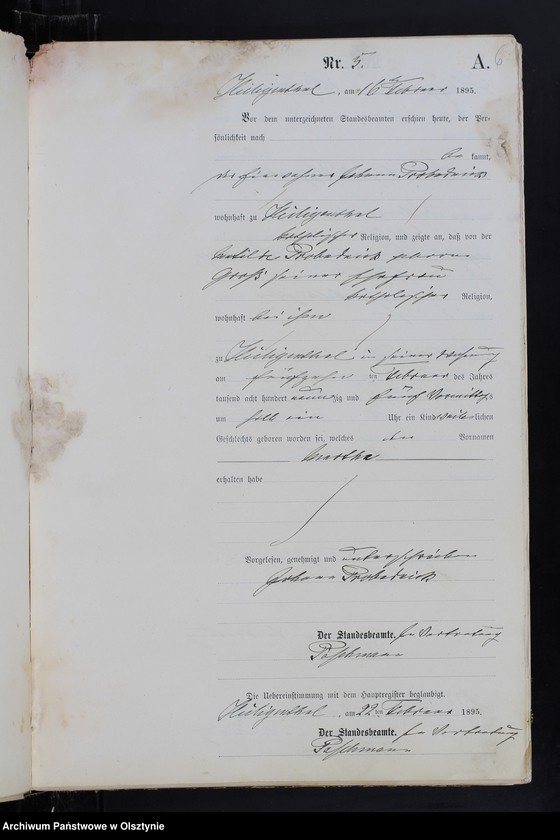 Nr. 5.
A.
6
Heiligenthal, am 16 ten Februar 1895.
Vor dem unterzeichneten Standesbeamten erschien heute, der Per-
sönlichkeit nach
be kannt,
der Einwohner Johann
wohnhaft zu Heiligenthal
katholischer Religion, und zeigte an, daß von der
geborne
Groß seiner Ehefrau
katholischer Religion,
wohnhaft bei ihm
zu Heiligenthal in seiner Wohnung
am fünfzehn ten Februar des Jahres
tausend acht hundert neunzig und fünf Vormittags
um halb ein Uhr ein Kind weiblichen
Geschlechts geboren worden sei, welches den Vornamen
Martha
erhalten habe
Vorgelesen, genehmigt und unterschrieben
Johann
Der Standesbeamte. In Vertretung
Paschmann
Die Uebereinstimmung mit dem Hauptregister beglaubigt.
Heiligenthal, am 22 ten Februar 1895.
Der Standesbeamte. In Vertretung
Paschmann
Archiwum Państwowe w Olsztynie